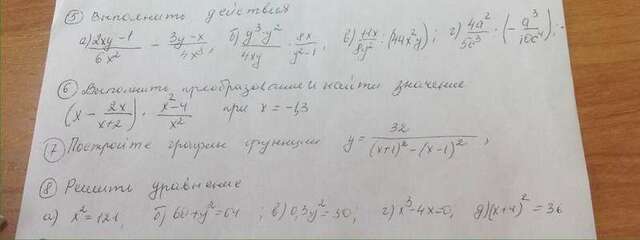 ⑤ Выполнить действия
а) (2xy-1)/(6x²) - (3y-x)/(4x³), б) (y³-y²)/(4xy) · 8x/(y²-1), в) /(8y²) : (44x²y); г) 4a²/(5c³) : (-a³/(10c⁴));
⑥ Выполнить преобразование и найти значение
(x - 2x/(x+2)) · (x²-4)/x² при x = -1,3
⑦ Постройте график функции y = 32/((x+1)²-(x-1)²),
⑧ Решить уравнение
а) x²=121, б) 60+y²=64; в) 0,3y²=30; г) x³-4x=0, д) (x+4)²=36